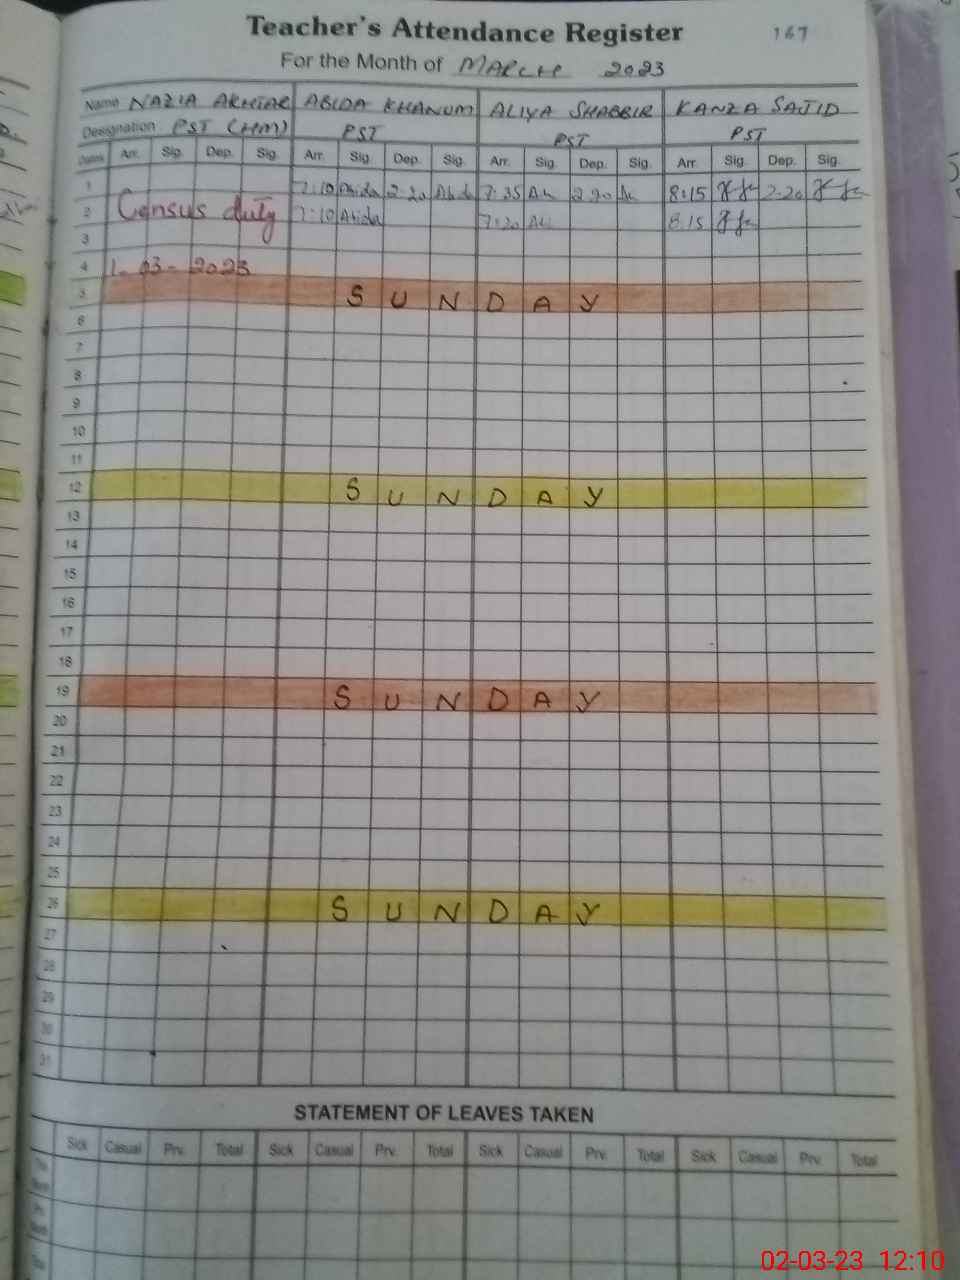 Teacher's Attendance Register 167
For the Month of MARCH 2023
Name NAZIA AKHTAR ABIDA KHANUM ALIYA SHABBIR KANZA SAJID
Designation PST (HM) PST PST PST
Dates Arr. Sig. Dep. Sig. Arr. Sig. Dep. Sig. Arr. Sig. Dep. Sig. Arr. Sig. Dep. Sig.
1 7:10 Abida 2:20 Abida 7:35 2:20 8:15 2-20
2 Census duty 7:10 Abida 7:20 8:15
3
4 1-03-2023
5 SUNDAY
6
7
8
9
10
11
12 SUNDAY
13
14
15
16
17
18
19 SUNDAY
20
21
22
23
24
25
26 SUNDAY
27
28
29
30
31
STATEMENT OF LEAVES TAKEN
Sick Casual Prv. Total Sick Casual Prv. Total Sick Casual Prv. Total Sick Casual Prv. Total
02-03-23 12:10